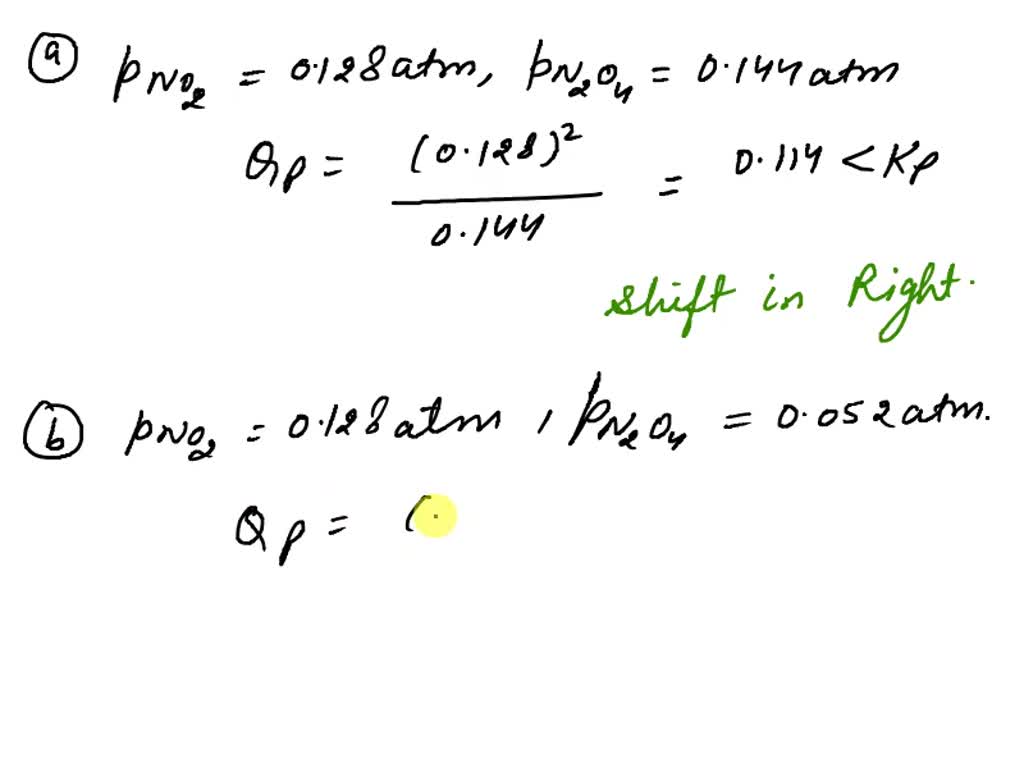 (a) pNO₂ = 0.128 atm, pN₂O₄ = 0.144 atm
Qp = (0.128)² / 0.144 = 0.114 < Kp
Shift in Right.
(b) pNO₂ = 0.128 atm, pN₂O₄ = 0.052 atm.
Qp = (.